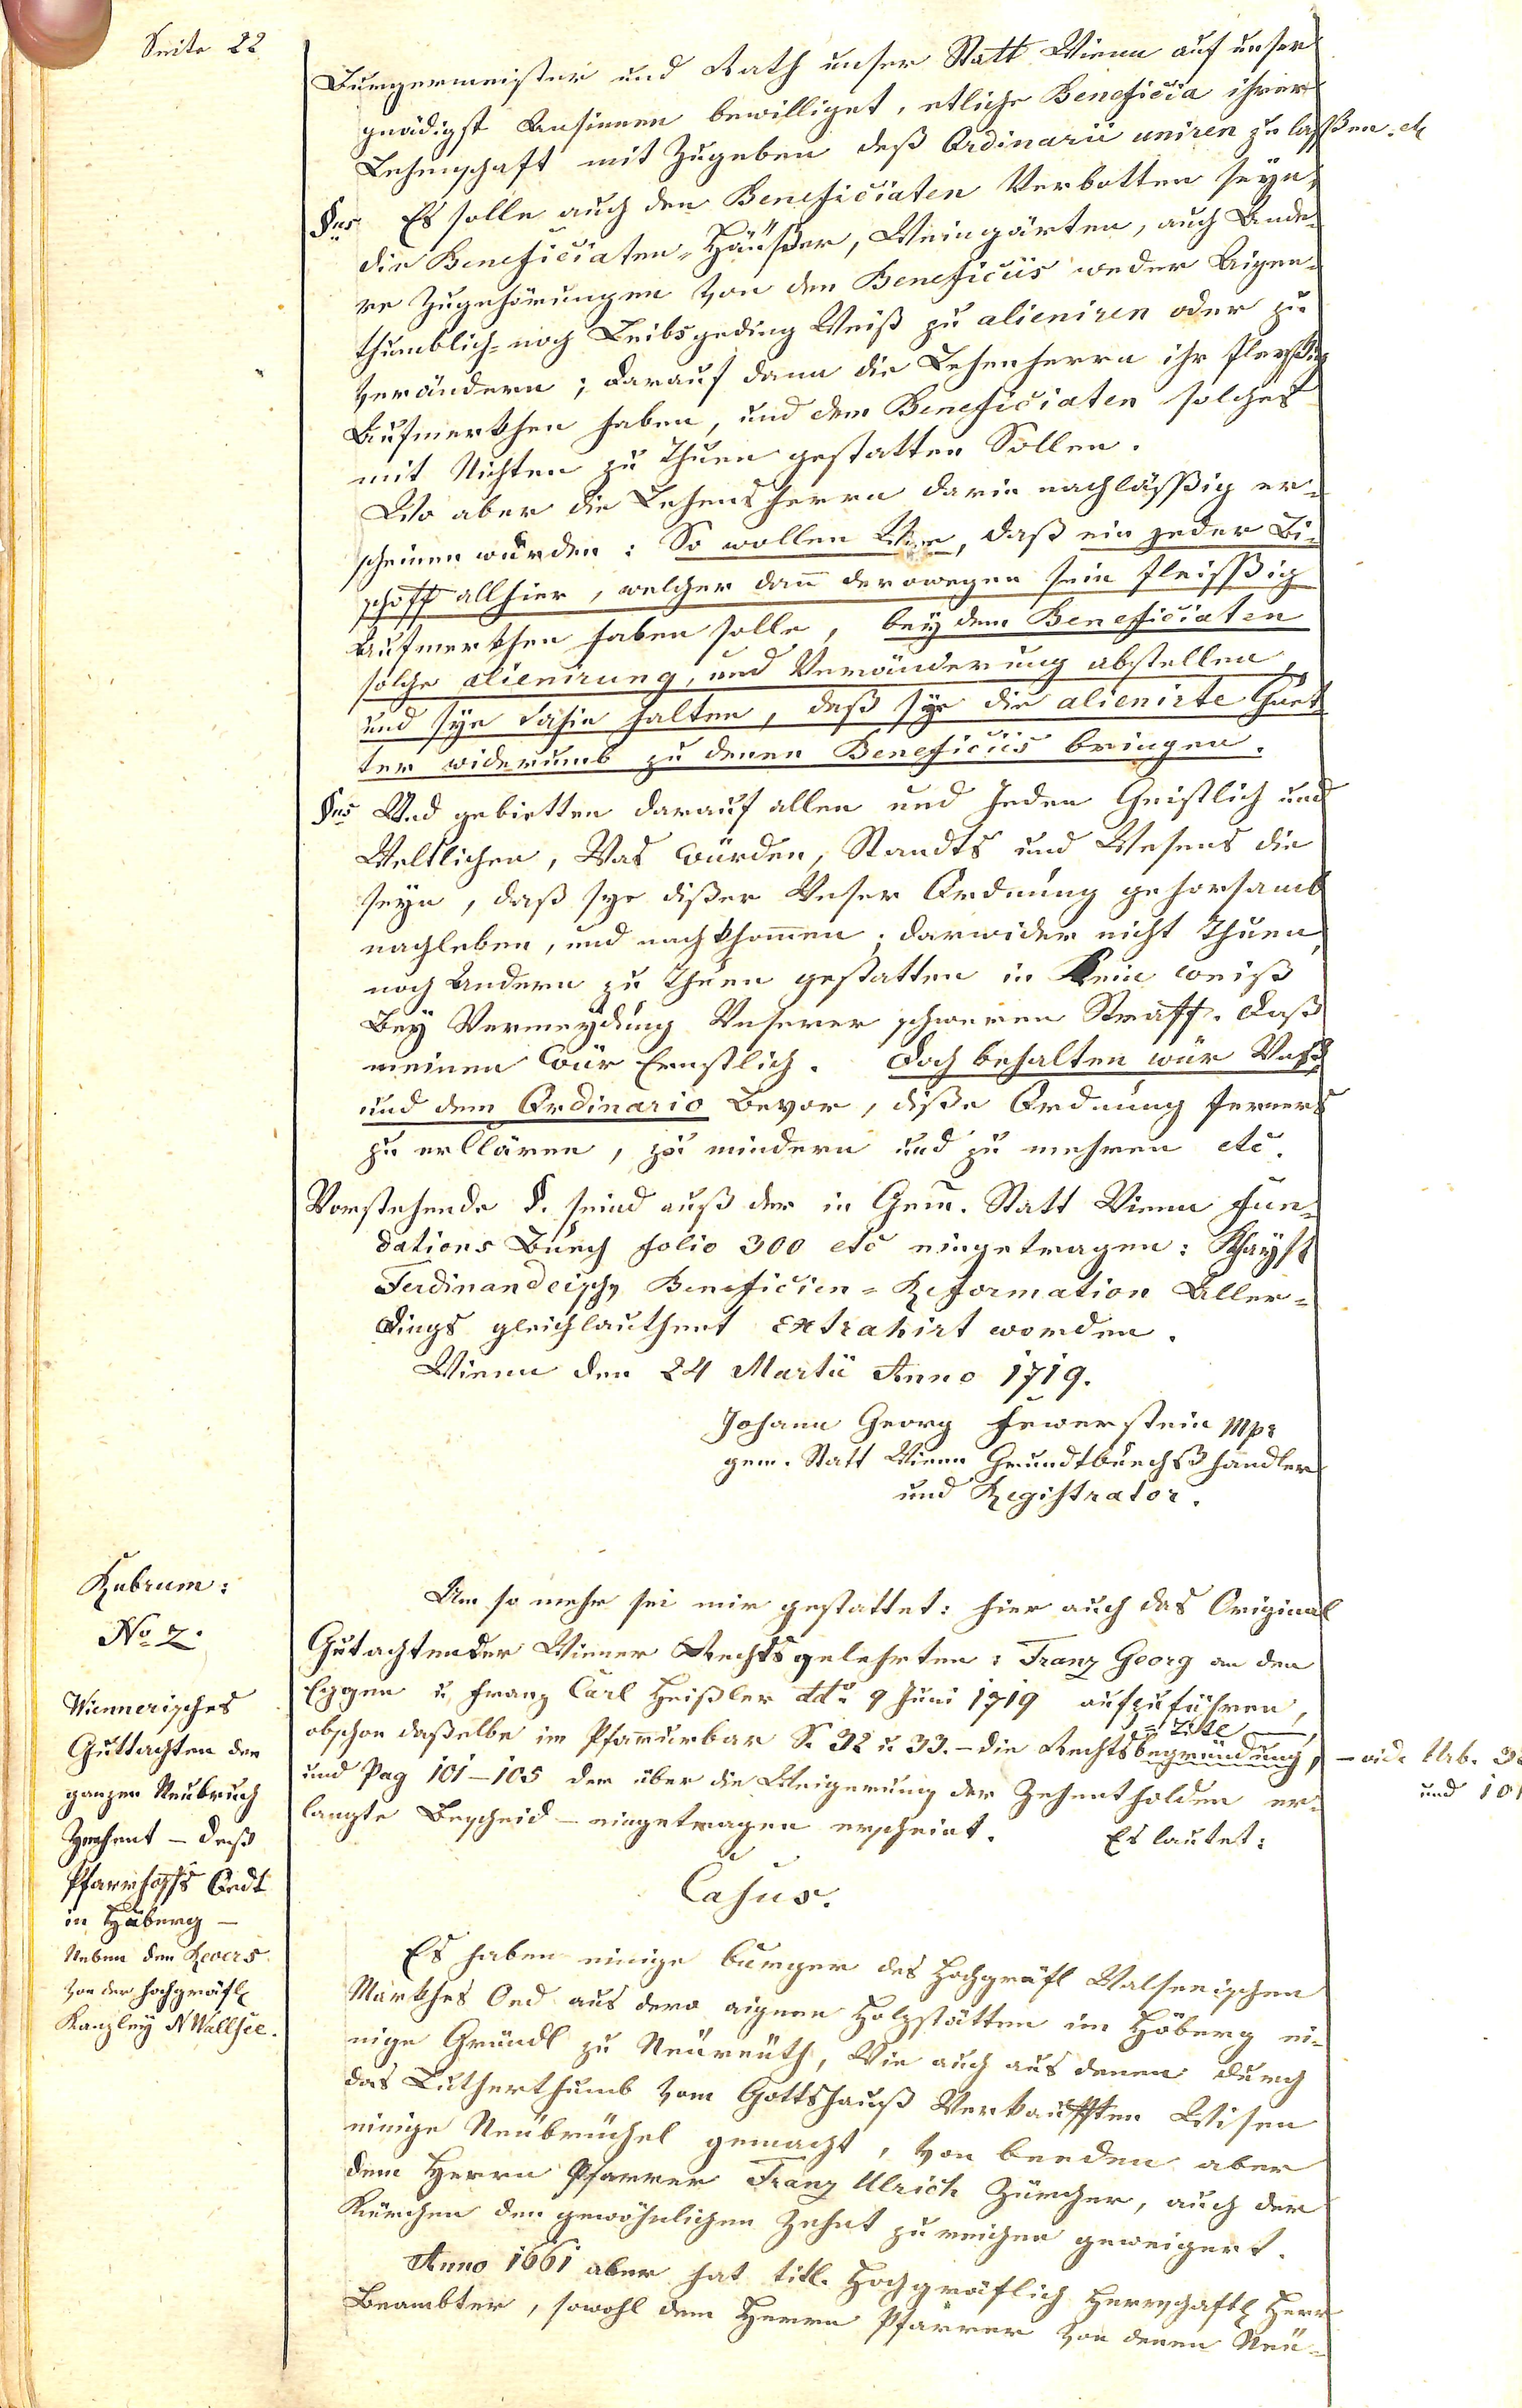 Seite 22
Burgermeister und Rath unser Statt Wienn auf unser
gnädigst Ansinnen bewilliget, etliche Beneficia ihrer
Lehenschaft mit Zugeben deß Ordinarii uniren zu lasßen. etc
§us Es solle auch den Beneficiaten Verbotten seyn,
die Beneficiaten-Häußer, Weingärten, auch Ande-
re Zugehörungen von den Beneficiis weder Aigen-
thumblich- noch Leibsgeding Weiß zu alieniren oder zu
verändern; darauf dann die Lehenherrn ihr fleißig
Aufmerkhen haben, und dem Beneficiaten solches
mit Nichten zu Thuen gestatten Sollen.
Wo aber die Lehensherrn darin nachläßig er-
scheinen wurden: So wollen Wür, daß ein jeder Bi-
schoff allhier, welcher dan̄ derowegen sein fleisßig
Aufmerkhen haben solle, bey dem Beneficiaten
solche alienirung, und Veränderung abstellen,
und sye dahin halten, daß sye die alienirte Guet-
ter widerumb zu denen Beneficiis bringen.
§us Und gebietten darauf allen und Jeden Geistlich und
Weltlichen, Was Würden, Standts und Wesens die
seyn, daß sye dißer Unser Ordnung gehorsamb
nachleben, und nachkhom̄en; darwider nicht Thuen,
noch Andern zu Thuen gestatten in Kein weiß
Bey Vermeydung Unserer schweren Straff. Daß
meinen Wür Ernstlich. Doch behalten wür Unß
und dem Ordinario Bevor, diße Ordnung ferners
zu erklären, zu mindern und zu mehren etc.
Vorstehende §. seind auß der in Gem. Statt Wienn Fun-
dations Buech folio 300 etc eingetragen: Khaysl
Ferdinandeisch Beneficien-Reformation Aller-
dings gleichlauthent Extrahirt worden.
Wienn den 24 Martii Anno 1719.
Johann Georg Fewerstein Mpr
gem. Statt Wienn Grundtbuechßhandler
und Registrator.
Rubrum:
No 2.
Wiennerisches
Guttachten der
ganzen Neubruch
Zechent – deß
Pfarrhoffs Oedt
in Häberg –
Neben den Revers
von der hochgräfl
Kanzley N Wallsee.
Um so mehr sei mir gestattet: hier auch das Original
Gutachten der Wiener Rechtsgelehrten: Franz Georg an der
Eggen u. Franz Carl Heißler ddo 9 Juni 1719 aufzuführen,
obschon daßelbe im Pfarrurbar S. 32 u 33. – die Rechtsbegründung,
= Title
– vide Urb. 32
und 101
und Pag 101–105 der über die Weigerung der Zehentholden er-
langte Bescheid – eingetragen erscheint. Es lautet:
Casus.
Es haben einige Burger des Hochgräfl Walseeischen
Markhes Oed aus dero aignen Holzstätten im Höberg ei-
nige Gründl zu Neureuth, Wie auch aus denen durch
das Lutherthumb vom Gottshauß Verkaufften Wisen
einige Neubrüchel gemacht, von beeden aber
dem Herrn Pfarrer Franz Ulrich Zürcher, auch der
Kürchen den gewöhnlichen Zehnt zu reichen geweigert.
Anno 1661 aber hat titl. Hochgräflich Herrschaftl Herr
Beambter, sowohl dem Herrn Pfarrer von denen Neu-